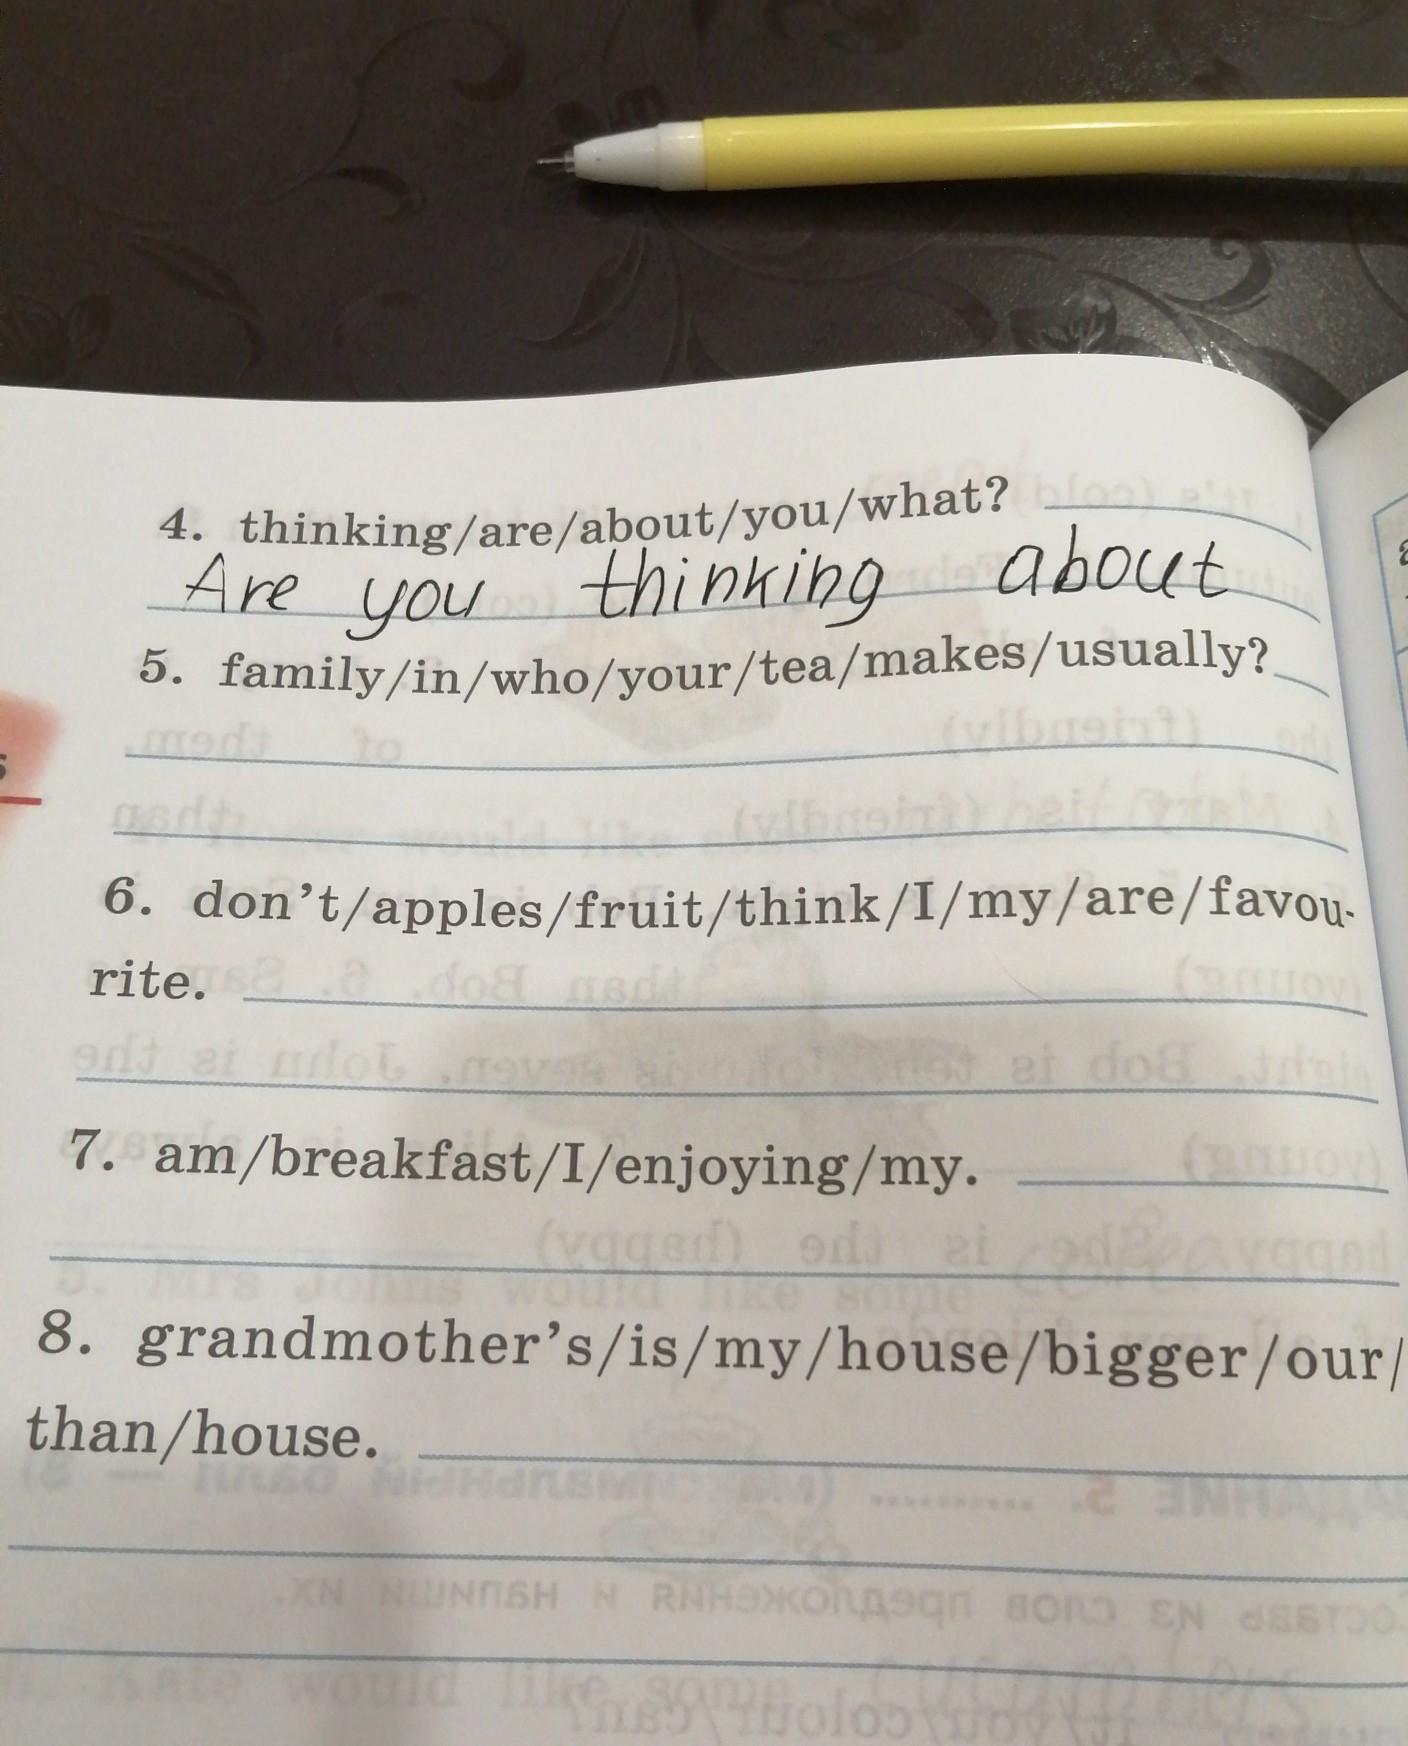 4. thinking/are/about/you/what?
Are you thinking about
5. family/in/who/your/tea/makes/usually?
6. don't/apples/fruit/think/I/my/are/favou-
rite.
7. am/breakfast/I/enjoying/my.
8. grandmother's/is/my/house/bigger/our/
than/house.